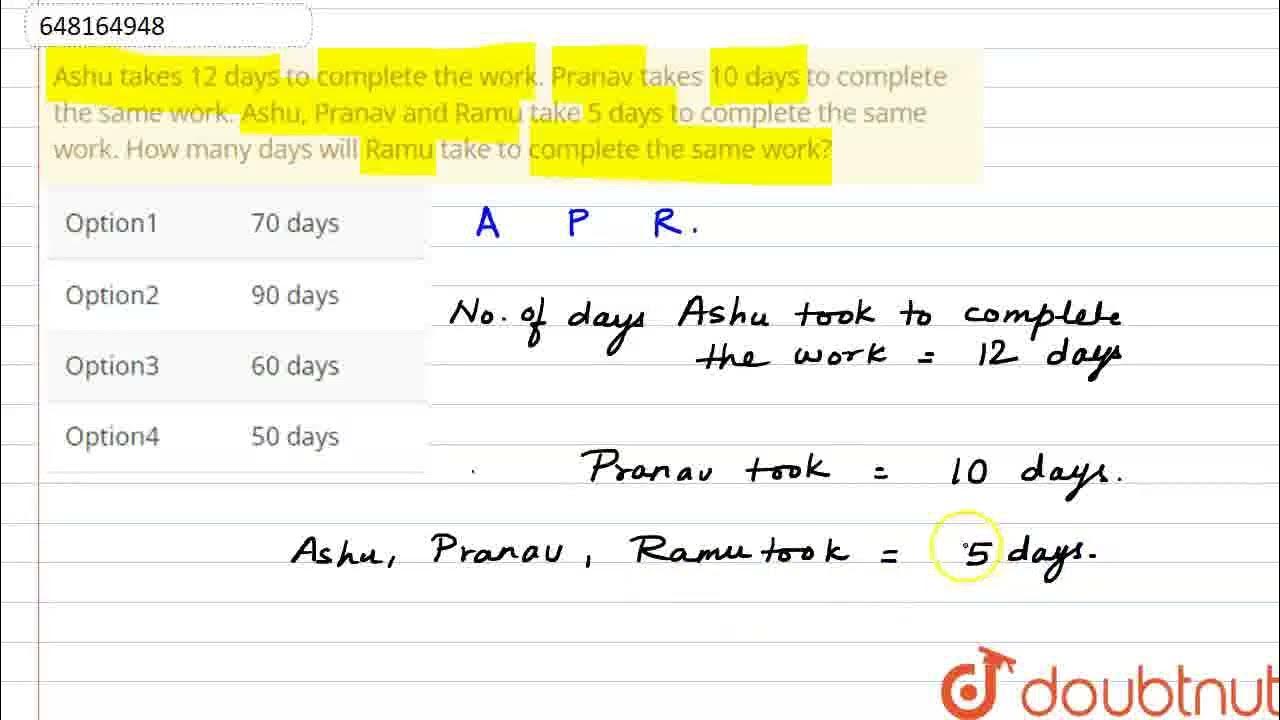 648164948
Ashu takes 12 days to complete the work. Pranav takes 10 days to complete
the same work. Ashu, Pranav and Ramu take 5 days to complete the same
work. How many days will Ramu take to complete the same work?
Option1 70 days
A P R.
Option2 90 days
No. of days Ashu took to complete
the work = 12 days
Option3 60 days
Option4 50 days
Pranav took = 10 days.
Ashu, Pranav, Ramu took = 5 days.
doubtnut